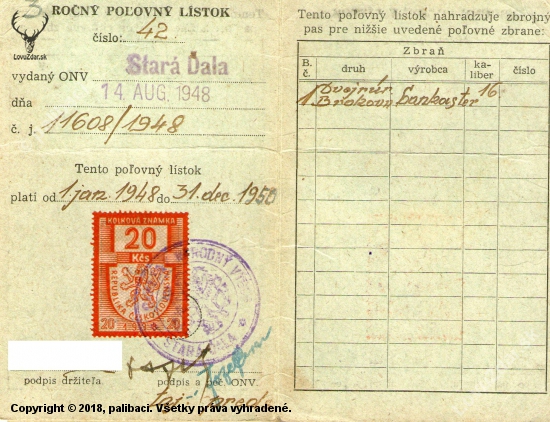 ROČNÝ POĽOVNÝ LÍSTOK
číslo: 42
LovuZdar.sk
vydaný ONV Stará Ďala
dňa 14 AUG. 1948
č. j. 11608/1948
Tento poľovný lístok
platí od 1 jan. 1948 do 31. dec. 1950
KOLKOVÁ ZNÁMKA
20
Kčs
REPUBLIKA ČESKOSLOVENSKÁ
20 20
NÁRODNÝ VÝB
STARÁ ĎALA
podpis držiteľa. podpis a peč. ONV.
Tento poľovný lístok nahradzuje zbrojný
pas pre nižšie uvedené poľovné zbrane:
Zbraň
B. č. druh výrobca kaliber číslo
1. Dvojrúr. Brokovn. Lankaster 16
Copyright © 2018, palibaci. Všetky práva vyhradené.